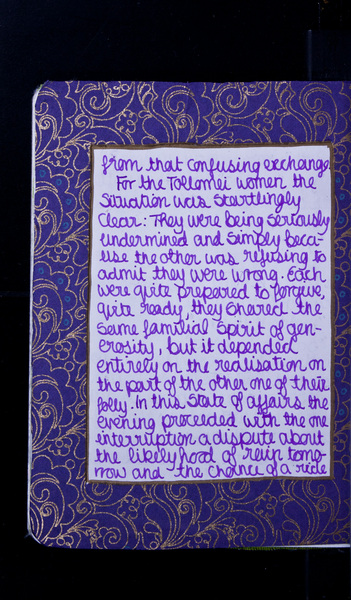 from that confusing exchange.
For the Tollomei women the
situation was startlingly
clear: They were being seriously
undermined and simply beca-
use the other was refusing to
admit they were wrong. Each
were quite prepared to forgive,
quite ready, they shared the
same familial spirit of gen-
erosity, but it depended
entirely on the realisation on
the part of the other one of their
folly. In this state of affairs the
evening proceeded with the one
interruption a dispute about
the likelyhood of rain tomo-
rrow and the chance of a ride